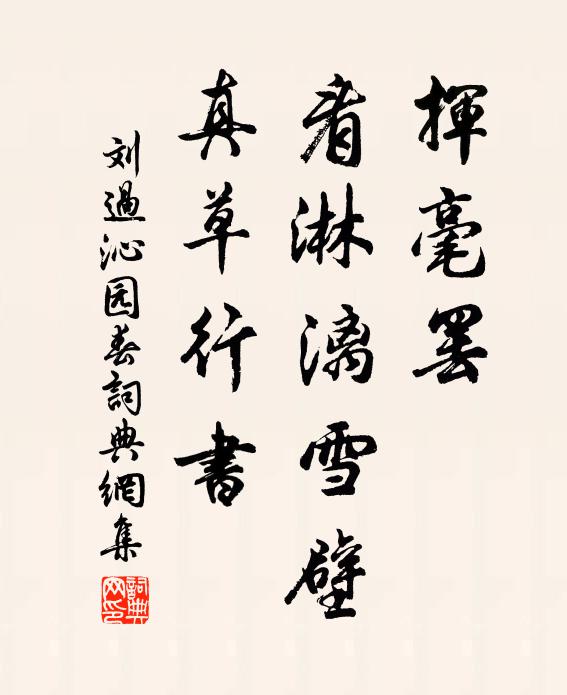 揮毫罢
看淋漓雪壁
真草行書
刘過沁园春詞典網集
詞典网印